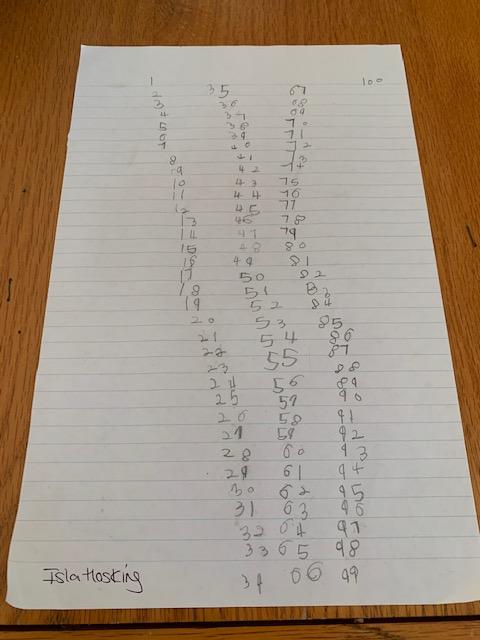 1
2
3
4
5
6
7
8
9
10
11
12
13
14
15
16
17
18
19
20
21
22
23
24
25
26
27
28
29
30
31
32
33
34
35
36
37
38
39
40
41
42
43
44
45
46
47
48
49
50
51
52
53
54
55
56
57
58
59
60
61
62
63
64
65
66
67
68
69
70
71
72
73
74
75
76
77
78
79
80
81
82
83
84
85
86
87
88
89
90
91
92
93
94
95
96
97
98
99
100
Isla Hosking